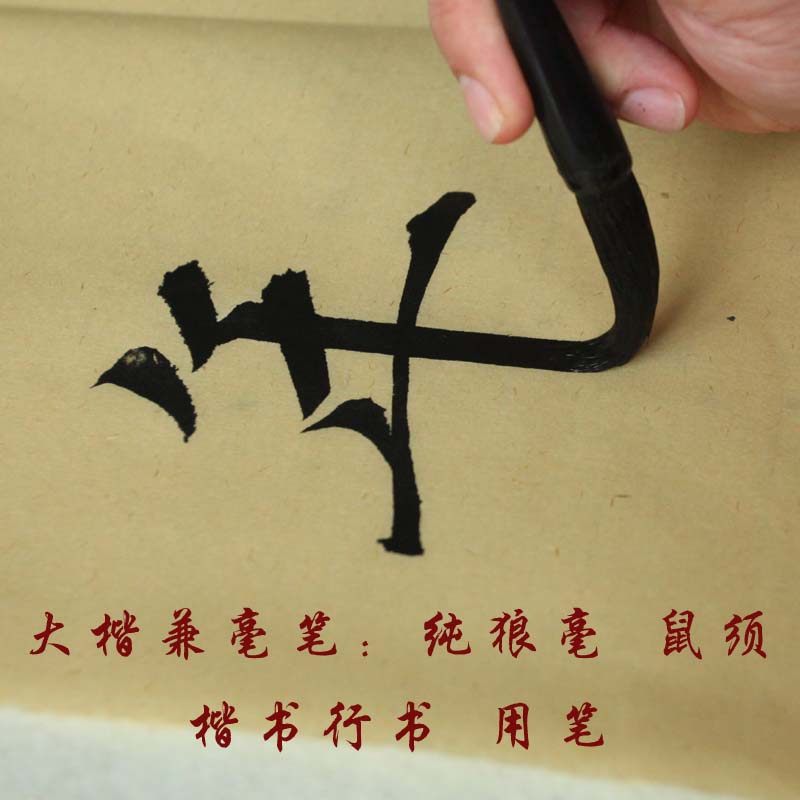 大楷兼毫笔：纯狼毫 鼠须
楷书行书 用笔